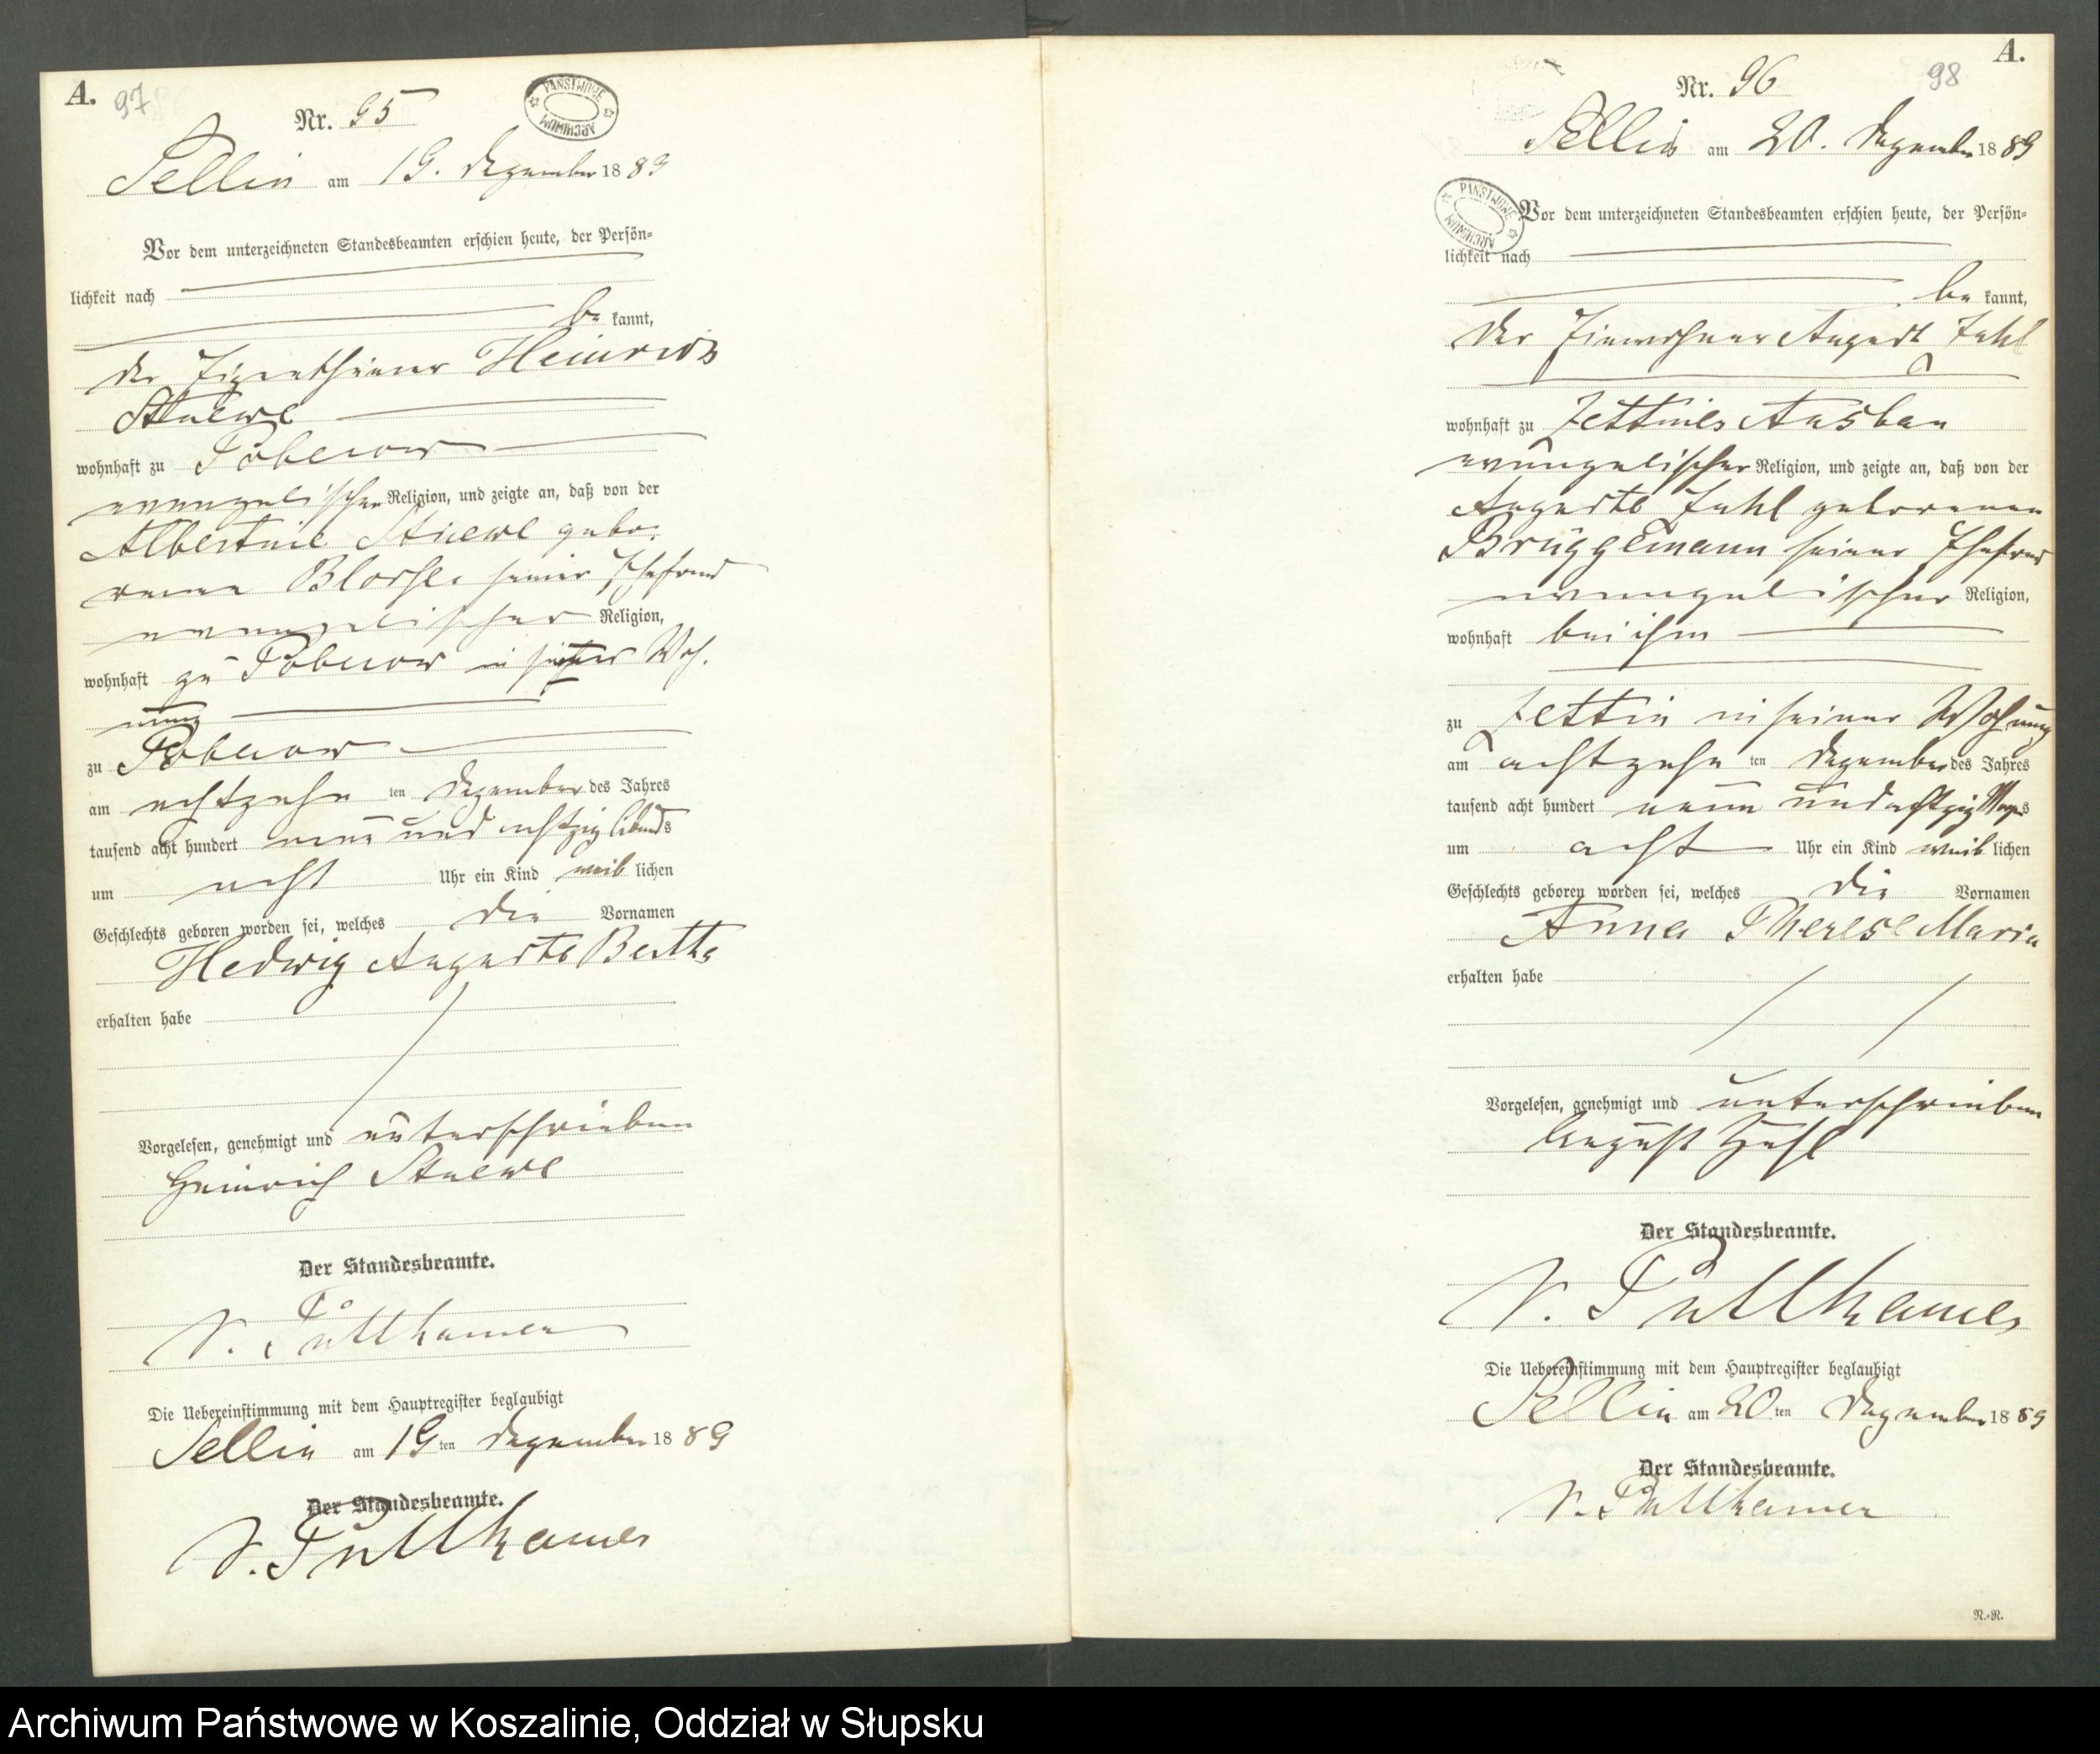 A.
97
Nr. 95
PAŃSTWOWE ARCHIWUM
Sellin am 19. Dezember 1889
Vor dem unterzeichneten Standesbeamten erschien heute, der Persön=
lichkeit nach
be kannt,
der Eigenthümer Heinrich
Stuewe
wohnhaft zu Poberow
evangelischer Religion, und zeigte an, daß von der
Albertine Stuewe gebo=
renen seiner Ehefrau
evangelischer Religion,
wohnhaft zu Poberow in seiner Woh=
nung
zu Poberow
am achtzehn ten Dezember des Jahres
tausend acht hundert neun und achtzig Abends
um acht Uhr ein Kind weib lichen
Geschlechts geboren worden sei, welches die Vornamen
Hedwig Auguste Bertha
erhalten habe
Vorgelesen, genehmigt und unterschrieben
Heinrich Stuewe
Der Standesbeamte.
v. Puttkamer
Die Uebereinstimmung mit dem Hauptregister beglaubigt
Sellin am 19 ten Dezember 1889
Der Standesbeamte.
v. Puttkamer
A.
98
Nr. 96
Sellin am 20. Dezember 1889
PAŃSTWOWE ARCHIWUM
Vor dem unterzeichneten Standesbeamten erschien heute, der Persön=
lichkeit nach
be kannt,
der Einwohner August
wohnhaft zu Zettiner Ausbau
evangelischer Religion, und zeigte an, daß von der
Auguste geborenen
Brüggemann seiner Ehefrau
evangelischer Religion,
wohnhaft bei ihm
zu Zettin in seiner Wohnung
am achtzehn ten Dezember des Jahres
tausend acht hundert neun und achtzig Morgens
um acht Uhr ein Kind weib lichen
Geschlechts geboren worden sei, welches die Vornamen
Anna Therese Maria
erhalten habe
Vorgelesen, genehmigt und unterschrieben
August
Der Standesbeamte.
v. Puttkamer
Die Uebereinstimmung mit dem Hauptregister beglaubigt
Sellin am 20 ten Dezember 1889
Der Standesbeamte.
v. Puttkamer
N.=R.
Archiwum Państwowe w Koszalinie, Oddział w Słupsku